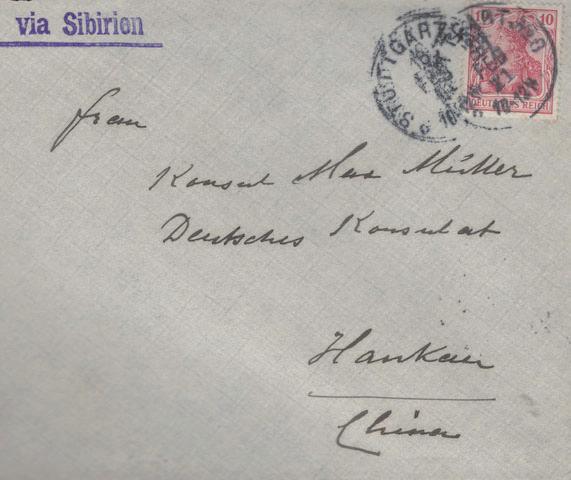 via Sibirien
STUTTGART
10
DEUTSCHES REICH
Frau
Konsul Max Müller
Deutsches Konsulat
Hankau
China